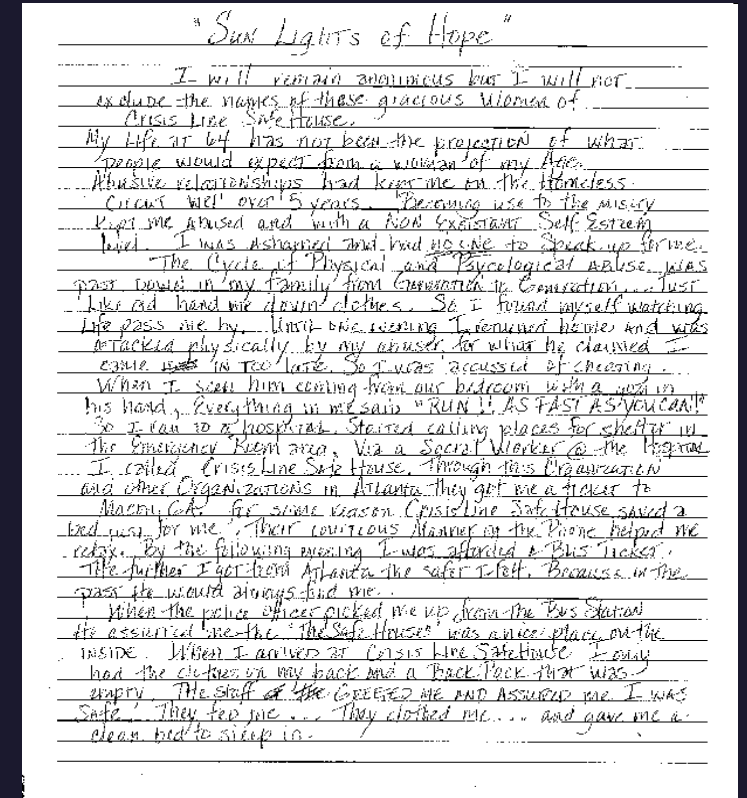 "Sun Lights of Hope"
I will remain anonimous but I will not
exclude the names of these gracious women of
Crisis Line Safe House.
My Life at 64 has not been the projection of what
people would expect from a woman of my Age.
Abusive relationships had kept me on the Homeless
Circut well over 5 years. Becoming use to the misity
kept me Abused and with a NON Existant Self-Esteem
level. I was Ashamed and had no one to speak up for me.
The Cycle of Physical and Psycological Abuse was
past down in my family from Generation to Generation... Just
Like old hand me down clothes. So I found myself watching
life pass me by. Until one evening I returned home and was
attacked physically by my abuser for what he claimed I
came in too late. So I was accussed of cheating.
When I seen him coming from our bedroom with a gun in
his hand, Everything in me said "RUN!! AS FAST AS YOU CAN!!"
So I ran to a hospital. Started calling places for shelter in
the Emergency Room area. Via a Social Worker @ the Hospital
I called Crisis Line Safe House. Through this Organization
and other Organizations in Atlanta they got me a ticket to
Macon, GA. for some reason Crisis Line Safe House saved a
bed just for me. Their courtious Manner on the Phone helped me
relax. By the following evening I was afforded a Bus Ticket.
The further I got from Atlanta the safer I felt. Because in the
past He would always find me.
When the police officer picked me up from the Bus Station
He assurred me the "The Safe House" was a nice place on the
inside. When I arrived at Crisis Line Safe House I only
had the clothes on my back and a Back Pack that was
empty. The staff GREETED ME AND ASSURED me I was
Safe. They fed me... They clothed me... and gave me a
clean bed to sleep in.